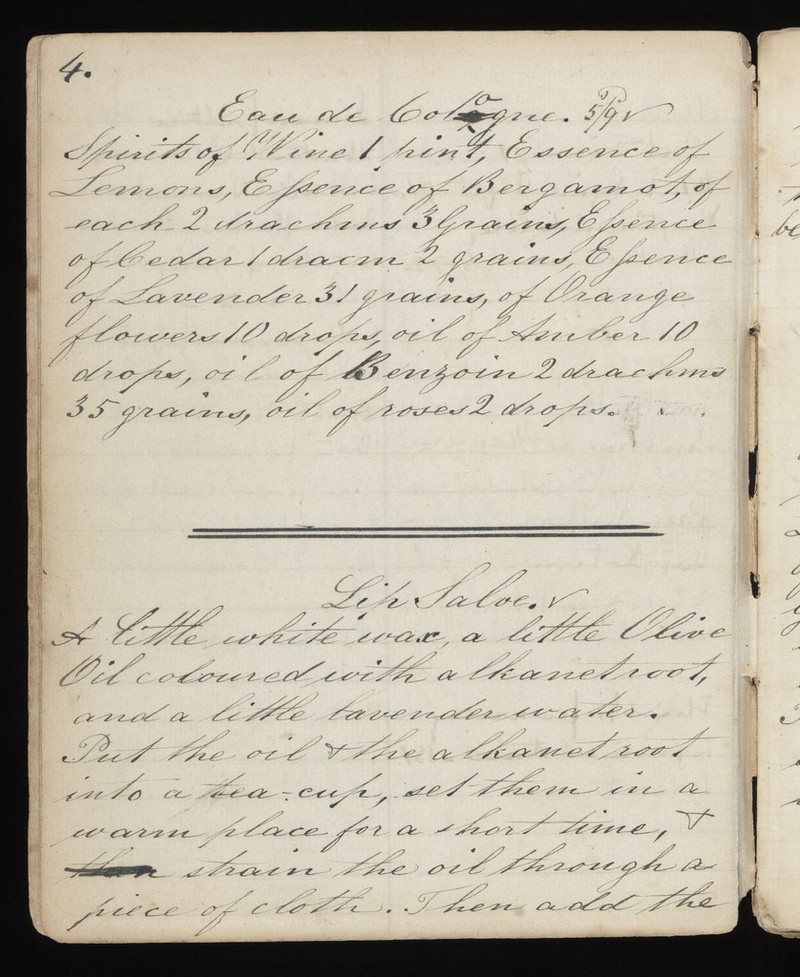 4.
Eau de Cologne. 5/9
Spirits of Wine 1 pint, Essence of
Lemons, Essence of Bergamot, of
each 2 drachms 3 Grains, Essence
of Cedar 1 dracm 2 grains, Essence
of Lavender 31 grains, of Orange
flowers 10 drops, oil of Amber 10
drops, oil of Benzoin 2 drachms
35 grains, oil of roses 2 drops.
Lip Salve.
A little white wax, a little Olive
Oil coloured with alkanet root,
and a little lavender water.
Put the oil & the alkanet root
into a tea-cup, set them in a
warm place for a short time, &
strain the oil through a
piece of cloth. Then add the